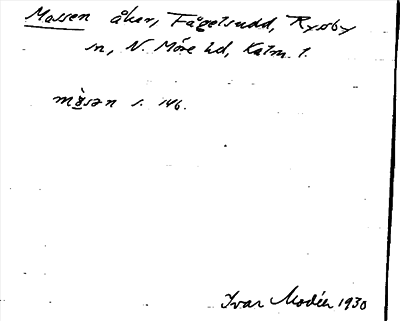 Massen åker, Fågelsudd, Ryssby
sn, N. Möre hd, Kalm. l.
s. 146.
Ivar Modéer 1930